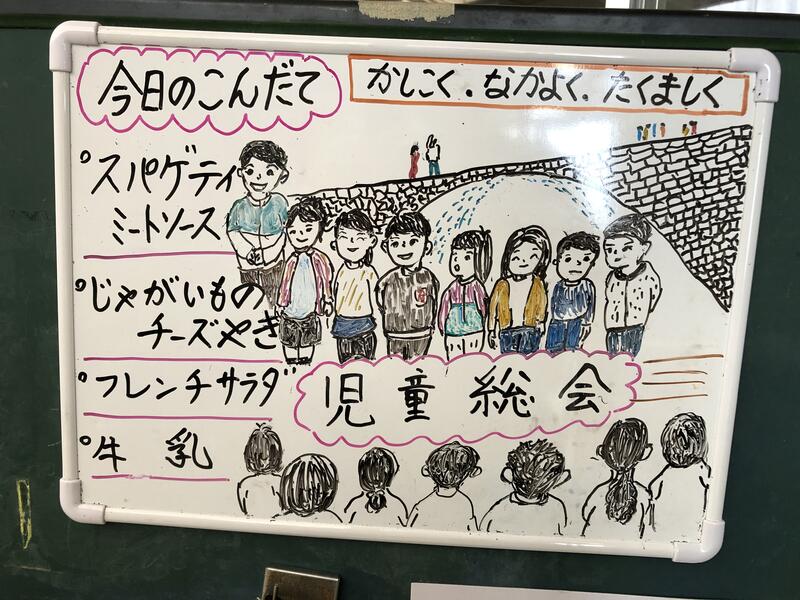 今日のこんだて
かしこく.なかよく.たくましく
°スパゲティ
ミートソース
°じゃがいもの
チーズやき
°フレンチサラダ
°牛乳
児童総会